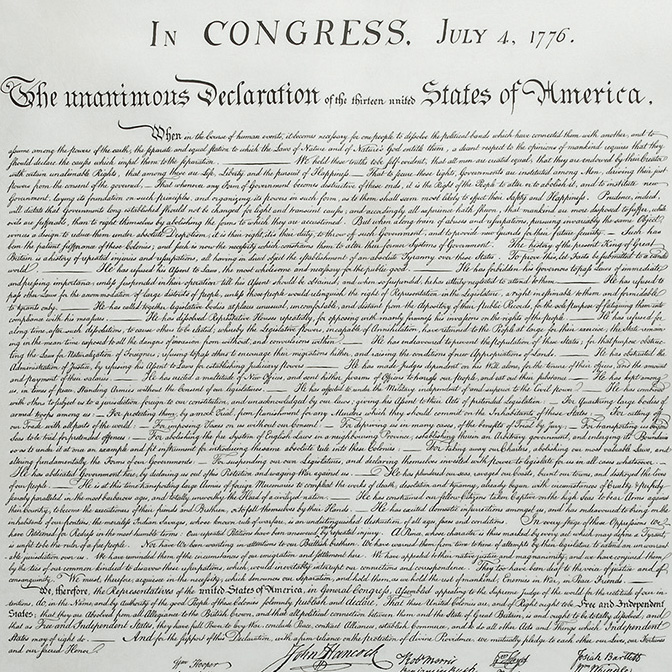 IN CONGRESS, JULY 4, 1776.
The unanimous Declaration of the thirteen united States of America,
When in the Course of human events, it becomes necessary for one people to dissolve the political bands which have connected them with another, and to
assume among the powers of the earth, the separate and equal station to which the Laws of Nature and of Nature's God entitle them, a decent respect to the opinions of mankind requires that they
should declare the causes which impel them to the separation. — We hold these truths to be self-evident, that all men are created equal, that they are endowed by their Creator
with certain unalienable Rights, that among these are Life, Liberty and the pursuit of Happiness. — That to secure these rights, Governments are instituted among Men, deriving their just
powers from the consent of the governed, — That whenever any Form of Government becomes destructive of these ends, it is the Right of the People to alter or to abolish it, and to institute new
Government, laying its foundation on such principles, and organizing its powers in such form, as to them shall seem most likely to effect their Safety and Happiness. Prudence, indeed,
will dictate that Governments long established should not be changed for light and transient causes; and accordingly all experience hath shewn, that mankind are more disposed to suffer, while
evils are sufferable, than to right themselves by abolishing the forms to which they are accustomed. But when a long train of abuses and usurpations, pursuing invariably the same Object,
evinces a design to reduce them under absolute Despotism, it is their right, it is their duty, to throw off such Government, and to provide new Guards for their future security. — Such has
been the patient sufferance of these Colonies; and such is now the necessity which constrains them to alter their former Systems of Government. The history of the present King of Great
Britain is a history of repeated injuries and usurpations, all having in direct object the establishment of an absolute Tyranny over these States. To prove this, let Facts be submitted to a candid
world. — He has refused his Assent to Laws, the most wholesome and necessary for the public good. — He has forbidden his Governors to pass Laws of immediate
and pressing importance, unless suspended in their operation till his Assent should be obtained; and when so suspended, he has utterly neglected to attend to them. — He has refused to
pass other Laws for the accommodation of large districts of people, unless those people would relinquish the right of Representation in the Legislature, a right inestimable to them and formidable
to tyrants only. — He has called together legislative bodies at places unusual, uncomfortable, and distant from the depository of their public Records, for the sole purpose of fatiguing them into
compliance with his measures. — He has dissolved Representative Houses repeatedly, for opposing with manly firmness his invasions on the rights of the people. — He has refused for
a long time, after such dissolutions, to cause others to be elected; whereby the Legislative powers, incapable of Annihilation, have returned to the People at large for their exercise; the State remain-
ing in the mean time exposed to all the dangers of invasion from without, and convulsions within. — He has endeavoured to prevent the population of these States; for that purpose obstruc-
ting the Laws for Naturalization of Foreigners; refusing to pass others to encourage their migrations hither, and raising the conditions of new Appropriations of Lands. — He has obstructed the
Administration of Justice, by refusing his Assent to Laws for establishing Judiciary powers. — He has made Judges dependent on his Will alone, for the tenure of their offices, and the amount
and payment of their salaries. — He has erected a multitude of New Offices, and sent hither swarms of Officers to harrass our people, and eat out their substance. — He has kept among
us, in times of peace, Standing Armies without the Consent of our legislatures. — He has affected to render the Military independent of and superior to the Civil power. — He has combined
with others to subject us to a jurisdiction foreign to our constitution, and unacknowledged by our laws; giving his Assent to their Acts of pretended Legislation: — For Quartering large bodies of
armed troops among us: — For protecting them, by a mock Trial, from punishment for any Murders which they should commit on the Inhabitants of these States: — For cutting off
our Trade with all parts of the world: — For imposing Taxes on us without our Consent: — For depriving us in many cases, of the benefits of Trial by Jury: — For transporting us beyond
Seas to be tried for pretended offences: — For abolishing the free System of English Laws in a neighbouring Province, establishing therein an Arbitrary government, and enlarging its Boundaries
so as to render it at once an example and fit instrument for introducing the same absolute rule into these Colonies: — For taking away our Charters, abolishing our most valuable Laws, and
altering fundamentally the Forms of our Governments: — For suspending our own Legislatures, and declaring themselves invested with power to legislate for us in all cases whatsoever. —
He has abdicated Government here, by declaring us out of his Protection and waging War against us. — He has plundered our seas, ravaged our Coasts, burnt our towns, and destroyed the lives
of our people. — He is at this time transporting large Armies of foreign Mercenaries to compleat the works of death, desolation and tyranny, already begun with circumstances of Cruelty & perfidy
scarcely paralleled in the most barbarous ages, and totally unworthy the Head of a civilized nation. — He has constrained our fellow Citizens taken Captive on the high Seas to bear Arms against
their Country, to become the executioners of their friends and Brethren, or to fall themselves by their Hands. — He has excited domestic insurrections amongst us, and has endeavoured to bring on the
inhabitants of our frontiers, the merciless Indian Savages, whose known rule of warfare, is an undistinguished destruction of all ages, sexes and conditions. In every stage of these Oppressions We
have Petitioned for Redress in the most humble terms: Our repeated Petitions have been answered only by repeated injury. A Prince, whose character is thus marked by every act which may define a Tyrant,
is unfit to be the ruler of a free people. Nor have We been wanting in attentions to our Brittish brethren. We have warned them from time to time of attempts by their legislature to extend an unwarrant-
able jurisdiction over us. We have reminded them of the circumstances of our emigration and settlement here. We have appealed to their native justice and magnanimity, and we have conjured them
by the ties of our common kindred to disavow these usurpations, which, would inevitably interrupt our connections and correspondence. They too have been deaf to the voice of justice and of
consanguinity. We must, therefore, acquiesce in the necessity, which denounces our Separation, and hold them, as we hold the rest of mankind, Enemies in War, in Peace Friends. —
We, therefore, the Representatives of the united States of America, in General Congress, Assembled, appealing to the Supreme Judge of the world for the rectitude of our in-
tentions, do, in the Name, and by Authority of the good People of these Colonies, solemnly publish and declare, That these United Colonies are, and of Right ought to be Free and Independent
States; that they are Absolved from all Allegiance to the British Crown, and that all political connection between them and the State of Great Britain, is and ought to be totally dissolved; and
that as Free and Independent States, they have full Power to levy War, conclude Peace, contract Alliances, establish Commerce, and to do all other Acts and Things which Independent
States may of right do. — And for the support of this Declaration, with a firm reliance on the protection of divine Providence, we mutually pledge to each other our Lives, our Fortunes
and our sacred Honor.
John Hancock
Rob Morris
Josiah Bartlett
Wm Hooper
Benjamin Rush
Wm Whipple